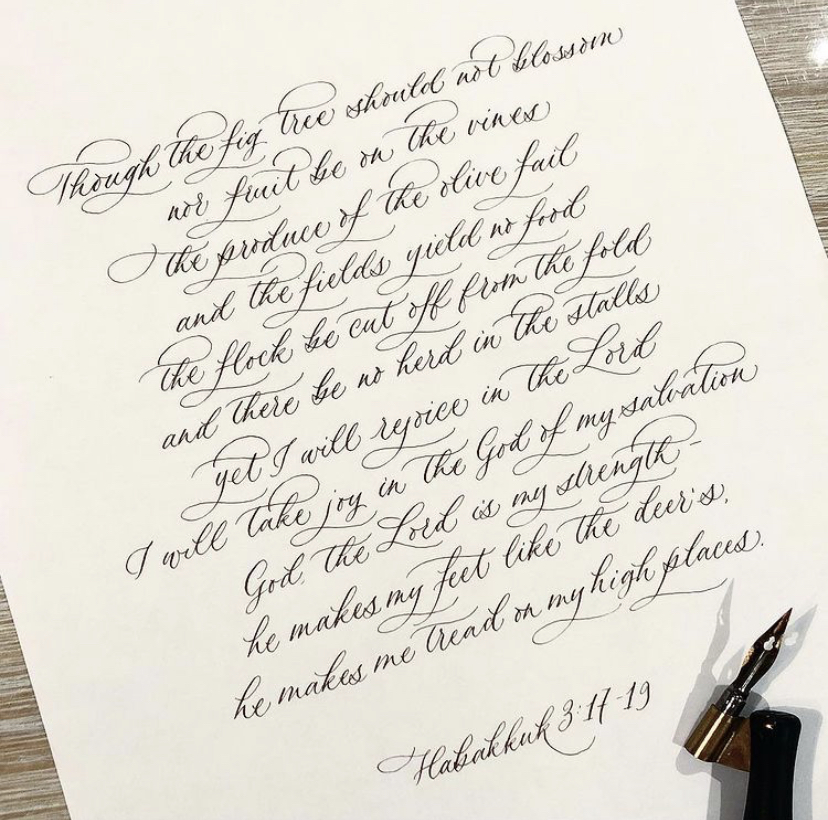 Though the fig tree should not blossom
nor fruit be on the vines
the produce of the olive fail
and the fields yield no food
the flock be cut off from the fold
and there be no herd in the stalls
yet I will rejoice in the Lord
I will take joy in the God of my salvation
God, the Lord is my strength -
he makes my feet like the deer's,
he makes me tread on my high places.
Habakkuk 3:17-19